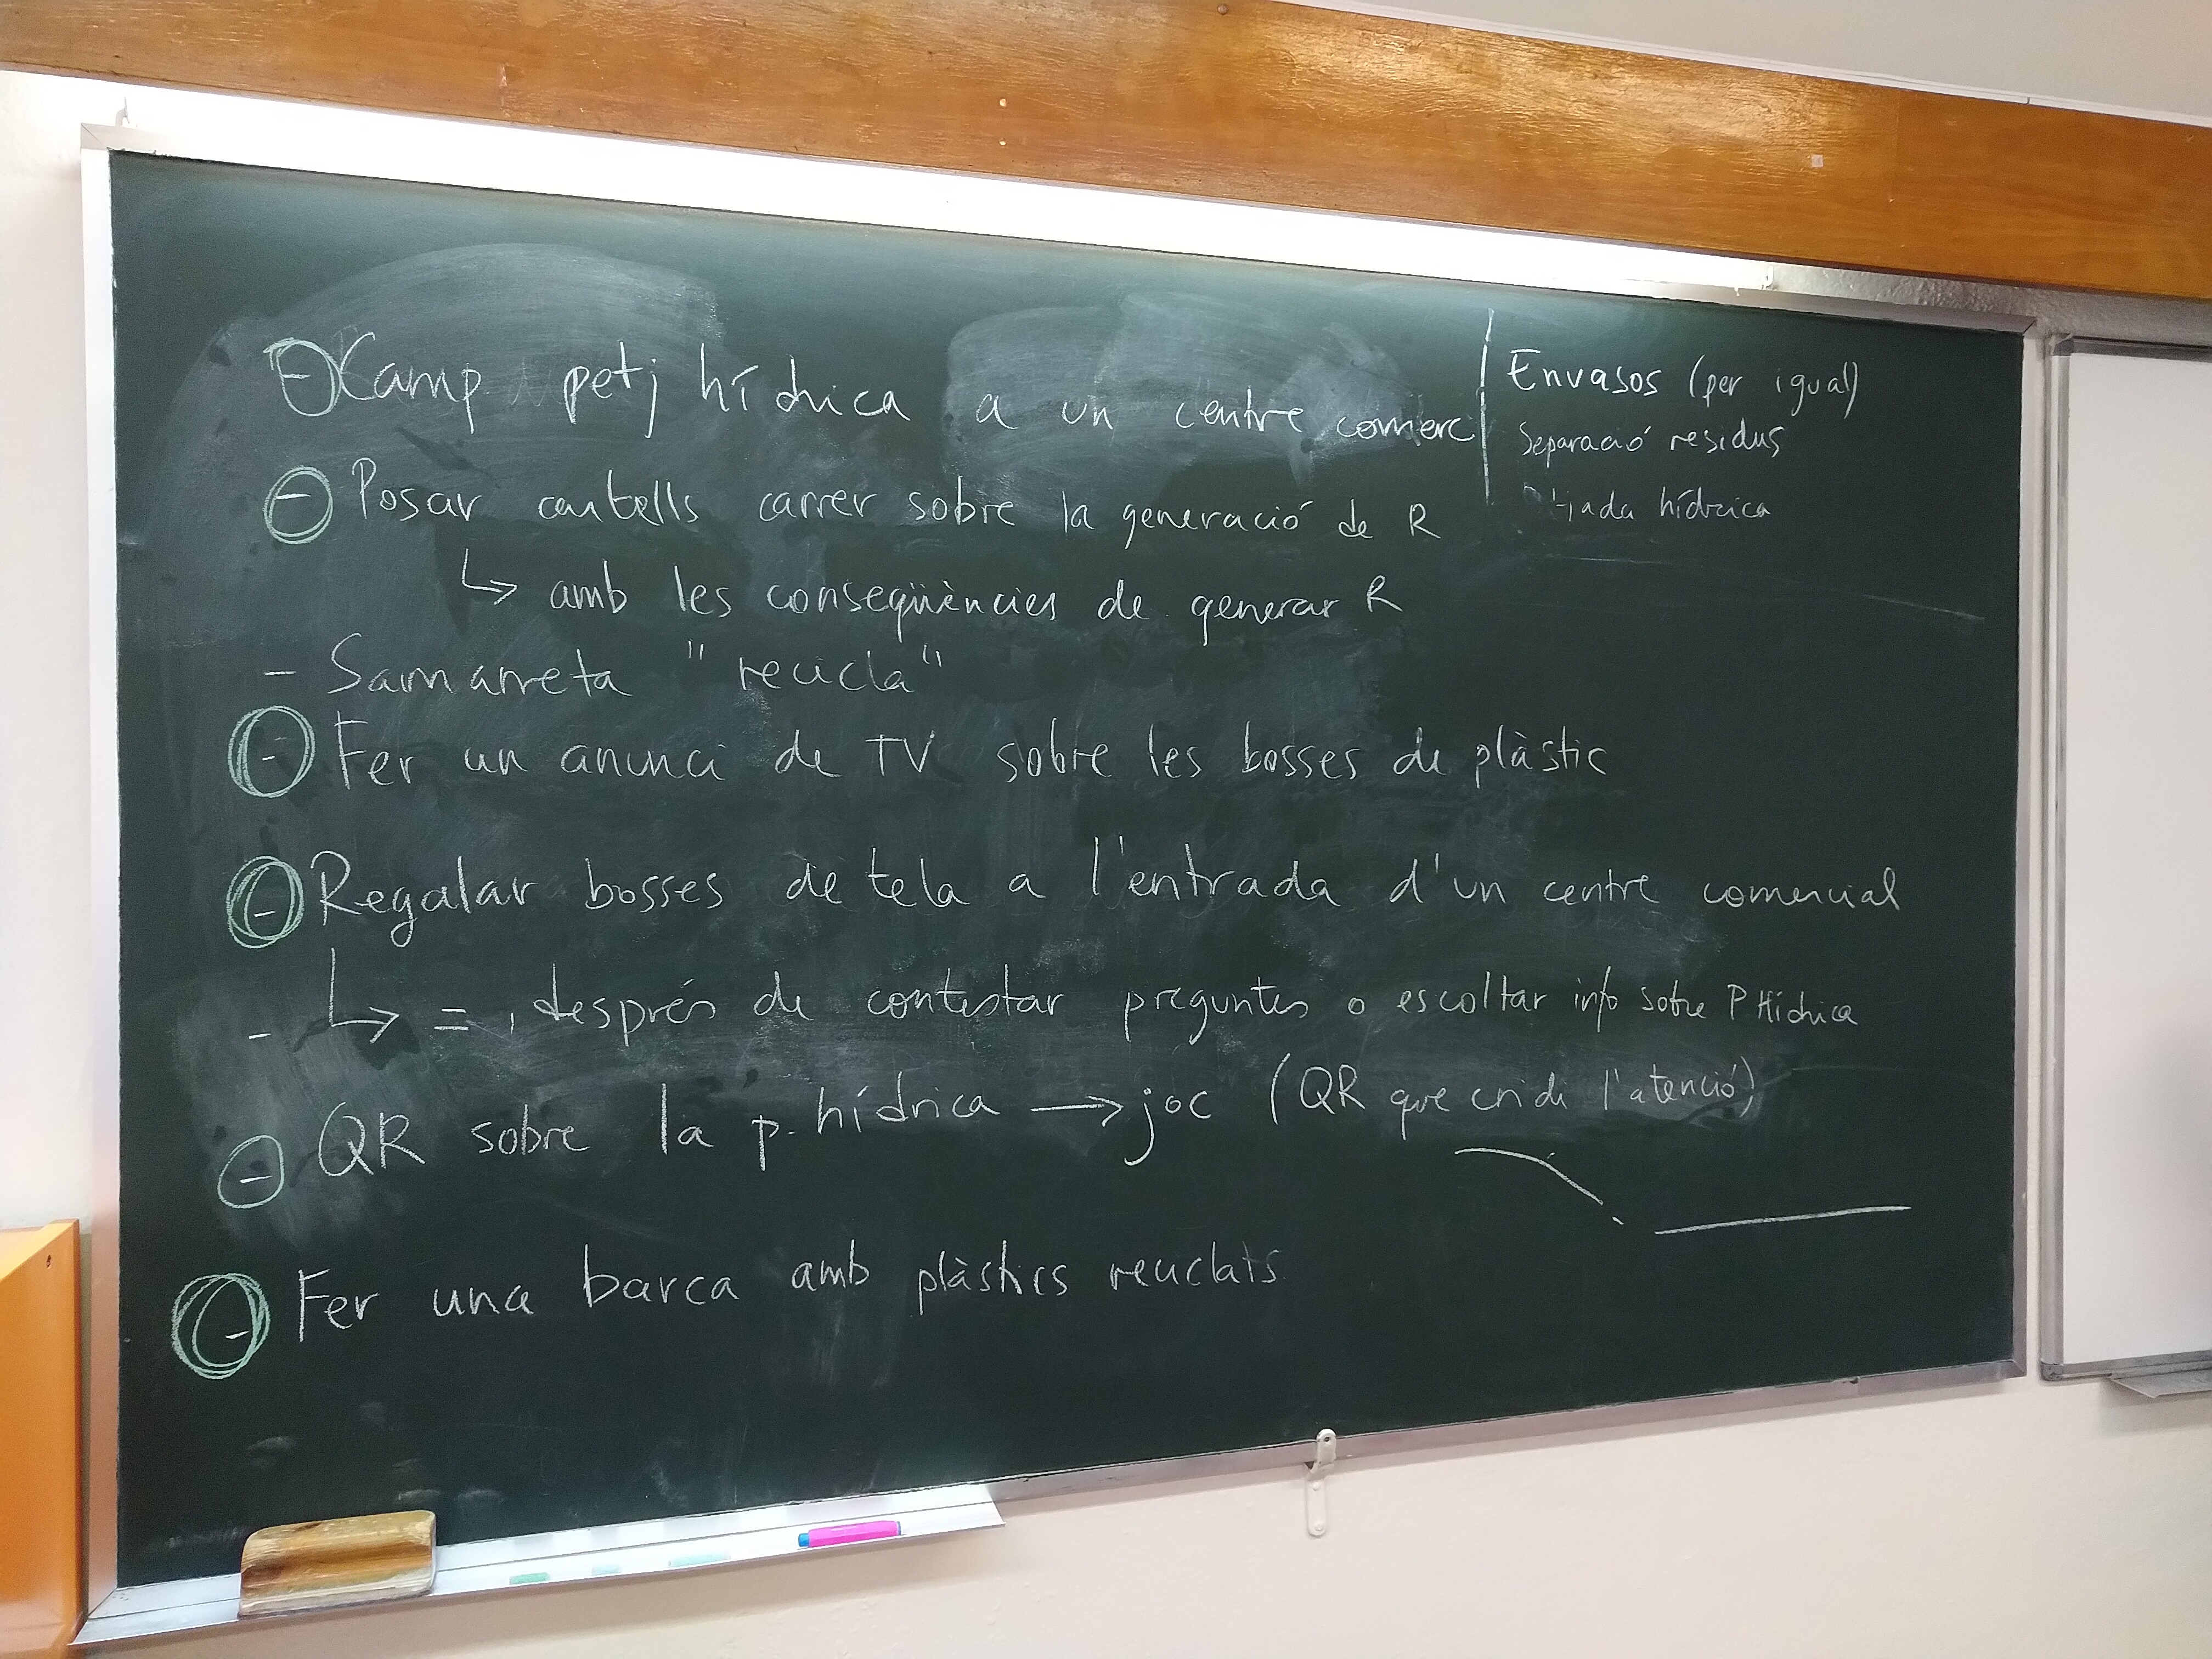 - Camp petj hídrica a un centre comerc
- Posar cartells carrer sobre la generació de R
↳ amb les conseqüències de generar R
- Samarreta "recicla"
- Fer un anunci de TV sobre les bosses de plàstic
- Regalar bosses de tela a l'entrada d'un centre comercial
- ↳ = , després de contestar preguntes o escoltar info sobre P Hídrica
- QR sobre la p. hídrica → joc (QR que cridi l'atenció)
- Fer una barca amb plàstics reciclats
Envasos (per igual)
Separació residus
tjada hídrica